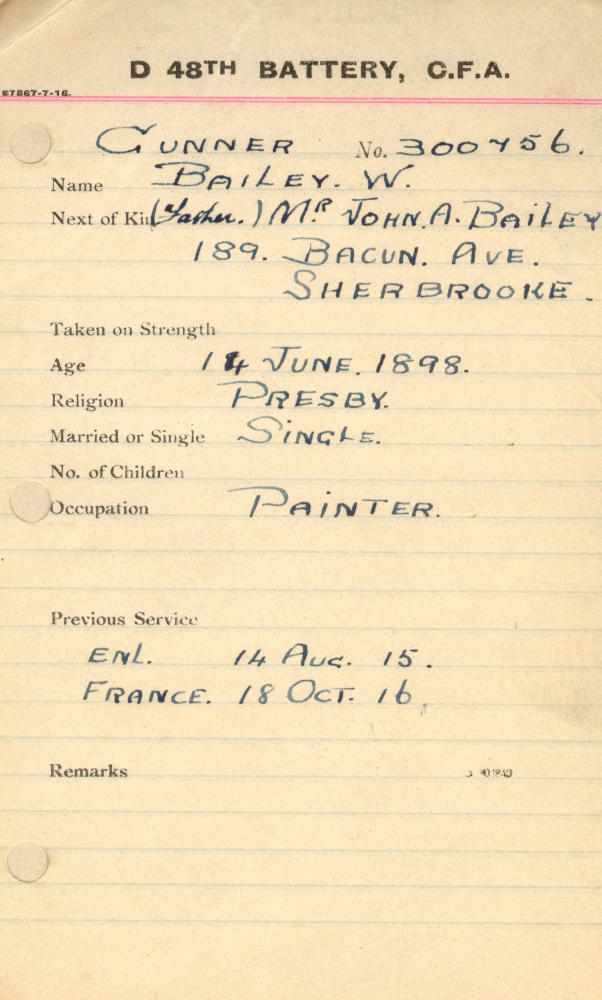 D 48TH BATTERY, C.F.A.
E7867-7-16.
GUNNER No. 300756.
Name BAILEY. W.
Next of Kin (Father.) MR JOHN. A. BAILEY
189. BACUN. AVE.
SHERBROOKE.
Taken on Strength
Age 14 JUNE. 1898.
Religion PRESBY.
Married or Single SINGLE.
No. of Children
Occupation PAINTER.
Previous Service
ENL. 14 AUG. 15.
FRANCE. 18 OCT. 16.
Remarks